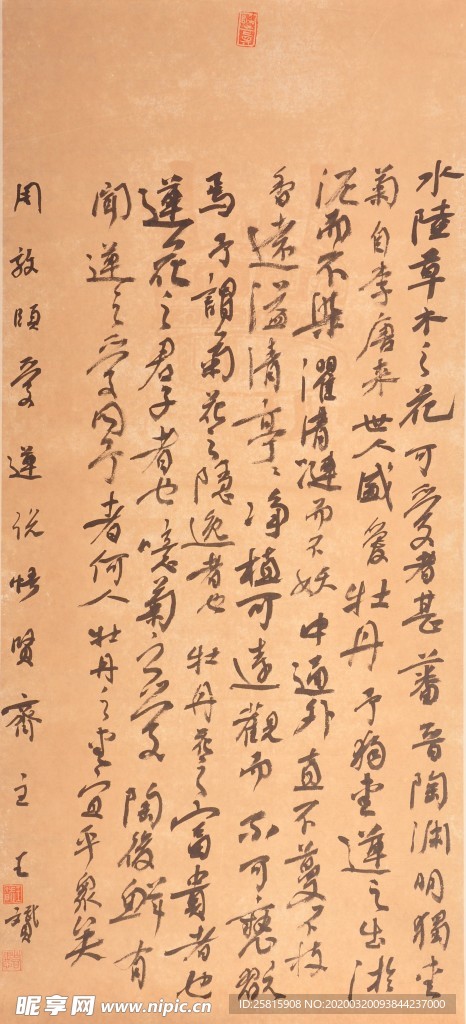 水陆草木之花可爱者甚蕃晋陶渊明独爱
菊自李唐来世人盛爱牡丹予独爱莲之出淤
泥而不染濯清涟而不妖中通外直不蔓不枝
香远溢清亭亭净植可远观而不可亵玩
焉予謂菊花之隐逸者也牡丹花之富貴者也
蓮花之君子者也噫菊之愛陶後鲜有
聞蓮之愛同予者何人牡丹之愛宜乎眾矣
周敦颐爱莲说悟贤齋主
昵享网 www.nipic.cn
ID:25815908 NO:20200320093844237000